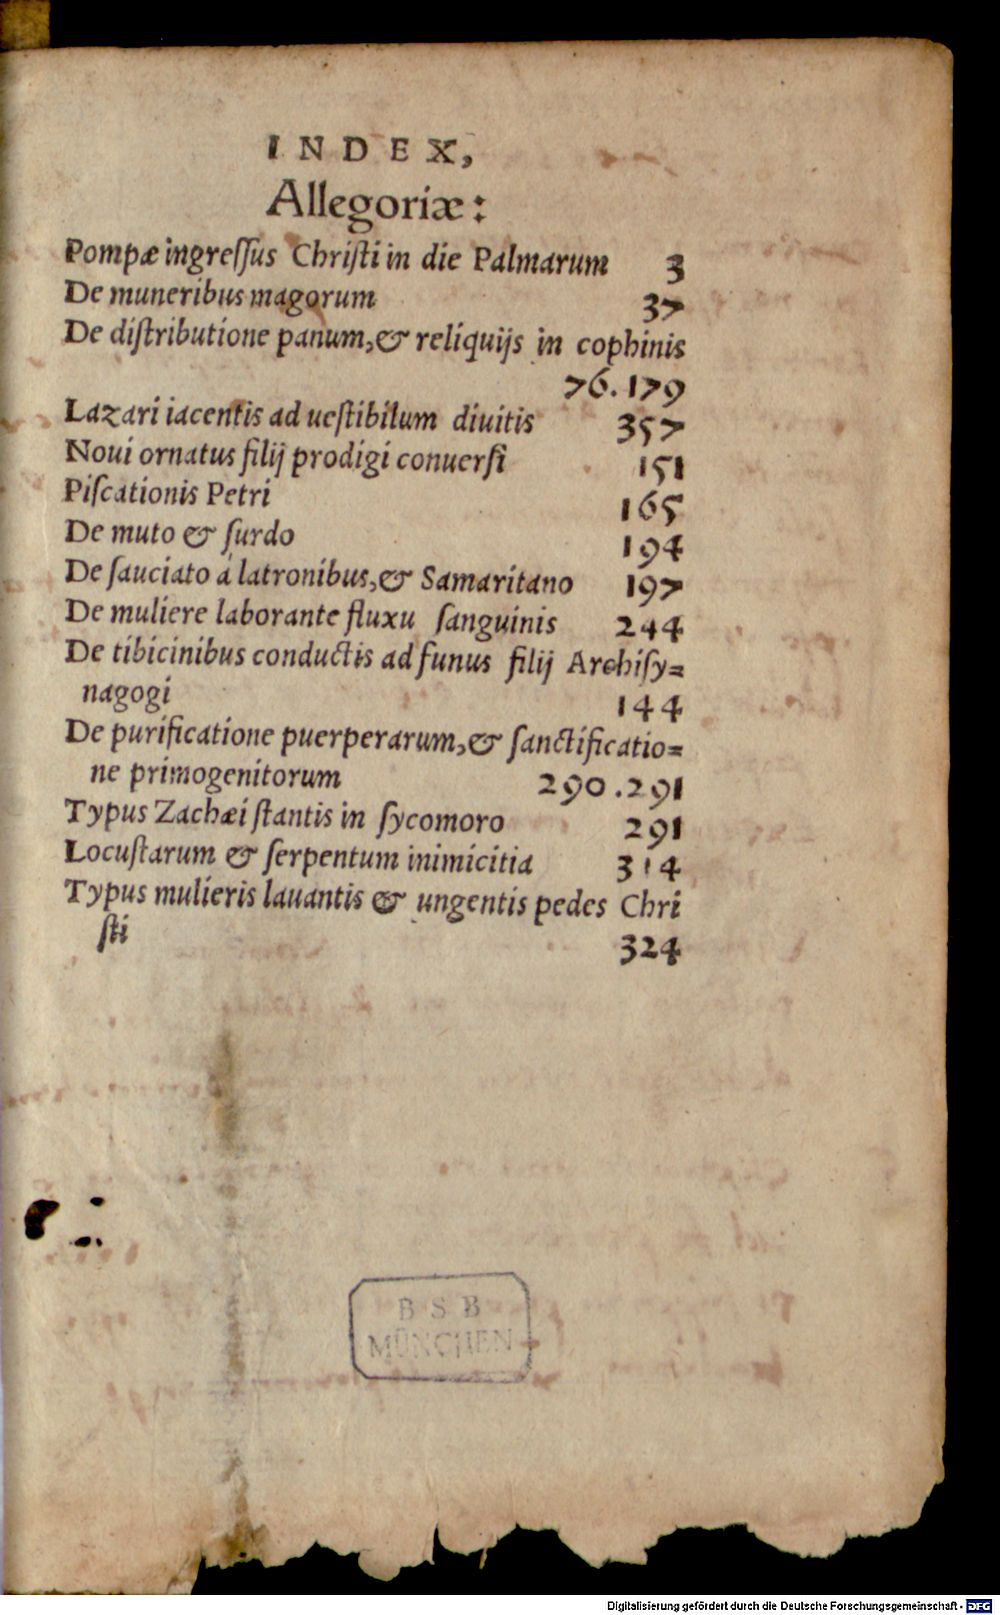 INDEX,
Allegoriæ:
Pompæ ingreſſus Chriſti in die Palmarum 3
De muneribus magorum 37
De diſtributione panum, & reliquijs in cophinis
76.179
Lazari iacentis ad ueſtibilum diuitis 357
Noui ornatus filij prodigi conuerſi 151
Piſcationis Petri 165
De muto & ſurdo 194
De ſauciato à latronibus, & Samaritano 197
De muliere laborante fluxu ſanguinis 244
De tibicinibus conductis ad funus filij Archiſy=
nagogi 144
De purificatione puerperarum, & ſanctificatio=
ne primogenitorum 290.291
Typus Zachæi ſtantis in ſycomoro 291
Locuſtarum & ſerpentum inimicitia 314
Typus mulieris lauantis & ungentis pedes Chri
ſti 324
BSB
MÜNCHEN
Digitalisierung gefördert durch die Deutsche Forschungsgemeinschaft - DFG